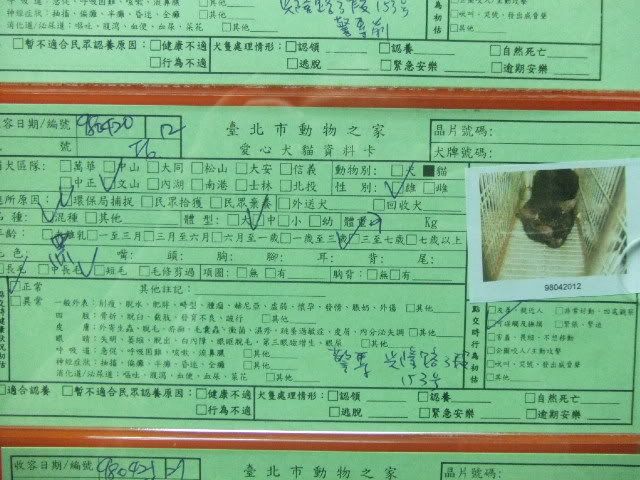 神經症狀: 偏頭、半癱、昏迷、全癱 □其他
消化道/泌尿道: 嘔吐、腹瀉、血便、血尿、菜花 □其他
興隆路3段153號
警專前
□暫不適合民眾認養原因: □健康不適 □行為不適
犬隻處理情形: □認領 □認養 □自然死亡
□逃脫 □緊急安樂 □逾期安樂
收容日期/編號 980420 12
臺北市動物之家
愛心犬貓資料卡
晶片號碼:
犬牌號碼:
犬區隊: □萬華 □中山 □大同 □松山 □大安 □信義
□中正 □文山 □內湖 □南港 □士林 □北投
動物別: □犬 ■貓
性別: □雄 □雌
原因: □環保局捕捉 □民眾拾獲 □民眾棄養 □外送犬 □回收犬
種: □混種 □其他
體型: □大 □中 □小 □幼 體重 Kg
年齡: □離乳 □一至三月 □三月至六月 □六月至一歲 □一歲至三歲 □三至七歲 □七歲以上
毛色: 黑 嘴: 頭: 胸: 腳: 耳: 背: 尾:
□長毛 □中長毛 □短毛 □毛修剪過 項圈: □無 □有 胸背: □無 □有
□正常
□異常
其他註記:
一般外表: 削瘦、脫水、肥胖、畸型、腫瘤、赫尼亞、虛弱、懷孕、發情、脹奶、外傷 □其他
四肢: 骨折、脫臼、截肢、發育不良、跛行 □其他
皮膚: 外寄生蟲、脫毛、芥廯、毛囊蟲、黴菌、濕疹、跳蚤過敏症、皮屑、內分泌失調 □其他
眼睛: 失明、萎縮、脫出、白內障、眼瞼脫毛、第三眼瞼增生、眼屎 □其他
呼吸道: 急促、呼吸困難、咳嗽、流鼻膿 □其他
神經症狀: 抽搐、偏頭、半癱、昏迷、全癱 □其他
消化道/泌尿道: 嘔吐、腹瀉、血便、血尿、菜花 □其他
警專 興隆路3段
153號
□友善、親近人 □非常好動、四處觀察
□可碰觸及抽繩 □緊張、緊迫
□害羞、畏縮、不想移動
□企圖咬人/主動攻擊
□吠叫、哭號、發出威脅聲
□其他
98042012
□適合認養 □暫不適合民眾認養原因: □健康不適 □行為不適
犬隻處理情形: □認領 □認養 □自然死亡
□逃脫 □緊急安樂 □逾期安樂
收容日期/編號 980421
臺北市動物之家
晶片號碼: